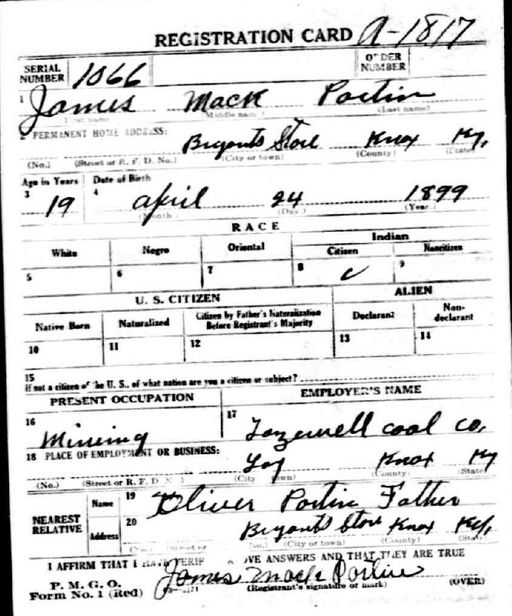 REGISTRATION CARD A-1817
SERIAL NUMBER 1066 ORDER NUMBER
1 James Mack Portin
(Middle name) (Last name)
2 PERMANENT HOME ADDRESS: Bryants Store Knox Ky.
(No.) (Street or R. F. D. No.) (City or town) (County) (State)
Age in Years Date of Birth
3 19 4 April 24 1899
(Month) (Day) (Year)
RACE
White Negro Oriental Indian
Citizen Noncitizen
5 6 7 8 9
U. S. CITIZEN ALIEN
Native Born Naturalized Citizen by Father's Naturalization Before Registrant's Majority Declarant Non-declarant
10 11 12 13 14
15
If not a citizen of the U. S., of what nation are you a citizen or subject?
PRESENT OCCUPATION EMPLOYER'S NAME
16 Mining 17 Tazewell coal co.
18 PLACE OF EMPLOYMENT OR BUSINESS:
Knox Ky
(No.) (Street or R. F. D. No.) (City or town) (County) (State)
NEAREST RELATIVE Name 19 Oliver Portin Father
Address 20 Bryants Store Knox Ky.
(No.) (City or town) (County) (State)
I AFFIRM THAT I HAVE VERIFIED ABOVE ANSWERS AND THAT THEY ARE TRUE
P. M. G. O.
Form No. 1 (Red) James Mack Portin
(Registrant's signature or mark) (OVER)